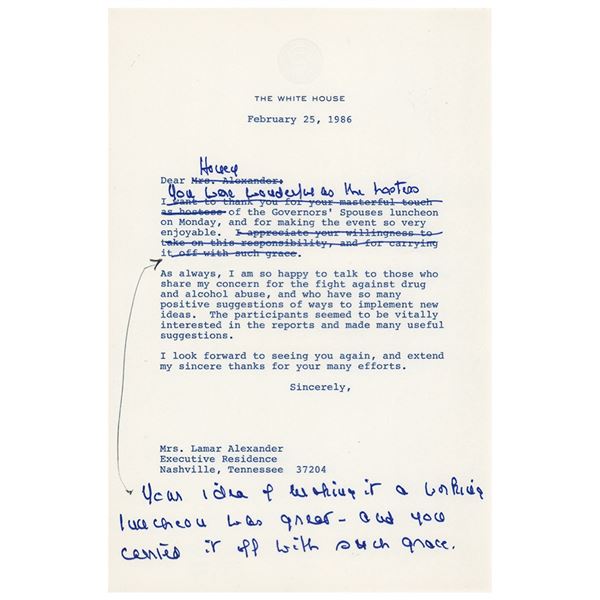 THE WHITE HOUSE
February 25, 1986
Honey
Dear Mrs. Alexander:
You were wonderful as the hostess
I want to thank you for your masterful touch
as hostess of the Governors' Spouses luncheon
on Monday, and for making the event so very
enjoyable. I appreciate your willingness to
take on this responsibility, and for carrying
it off with such grace.
As always, I am so happy to talk to those who
share my concern for the fight against drug
and alcohol abuse, and who have so many
positive suggestions of ways to implement new
ideas. The participants seemed to be vitally
interested in the reports and made many useful
suggestions.
I look forward to seeing you again, and extend
my sincere thanks for your many efforts.
Sincerely,
Mrs. Lamar Alexander
Executive Residence
Nashville, Tennessee 37204
Your idea of making it a working
luncheon was great - and you
carried it off with such grace.